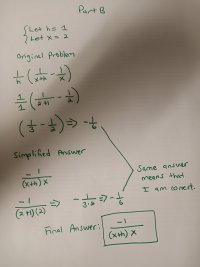 Part B
{Let h = 1
{Let x = 2
Original Problem
1/h (1/(x+h) - 1/x)
1/1 (1/(2+1) - 1/2)
(1/3 - 1/2) => -1/6
Simplified Answer
-1/((x+h)x)
Same answer
means that
I am correct.
-1/((2+1)(2)) => -1/(3·2) => -1/6
Final Answer: -1/((x+h)x)